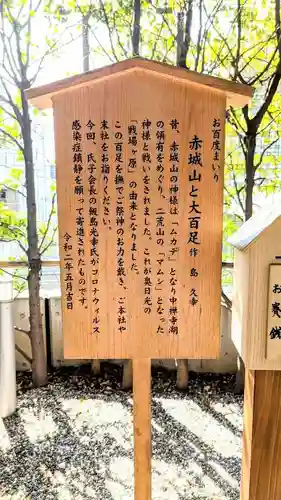 お百度まいり
赤城山と大百足 作 島 久幸
昔、赤城山の神様は「ムカデ」となり中禅寺湖
の領有をめぐり、二荒山の「マムシ」となった
神様と戦いをされました。これが奥日光の
「戦場ヶ原」の由来となりました。
この百足を撫でご祭神のお力を戴き、ご本社や
末社をお詣り下さい。
今回、氏子会長の飯島光幸氏がコロナウィルス
感染症鎮静を願って寄進したものです。
令和二年五月吉日
お賽銭